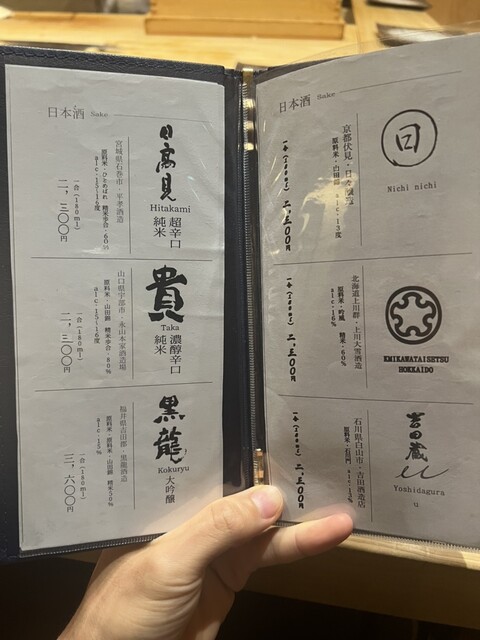 日本酒 Sake
日高見
Hitakami
超辛口
純米
宮城県石巻市・平孝酒造
原料米・ひとめぼれ 精米歩合・60%
alc・15~16度
一合(180ml)
二,三〇〇円
貴
Taka
濃醇辛口
純米
山口県宇部市・永山本家酒造場
原料米・山田錦 精米歩合・80%
alc・15~16度
一合(180ml)
二,三〇〇円
黒龍
Kokuryu
大吟醸
福井県吉田郡・黒龍酒造
原料米・山田錦 精米50%
alc・15%
一合(180ml)
三,六〇〇円
日本酒 Sake
日
Nichi nichi
京都伏見・日々醸造
原料米・山田錦 alc・13度
一合(180ml) 二,三〇〇円
KMIKAWATAISETSU
HOKKAIDO
北海道上川郡・上川大雪酒造
原料米・吟風 精米・60%
alc・16%
一合(180ml) 二,三〇〇円
吉田蔵
u
Yoshidagura
石川県白山市・吉田酒造店
原料米・石川門 alc・13%
一合(180ml) 二,三〇〇円